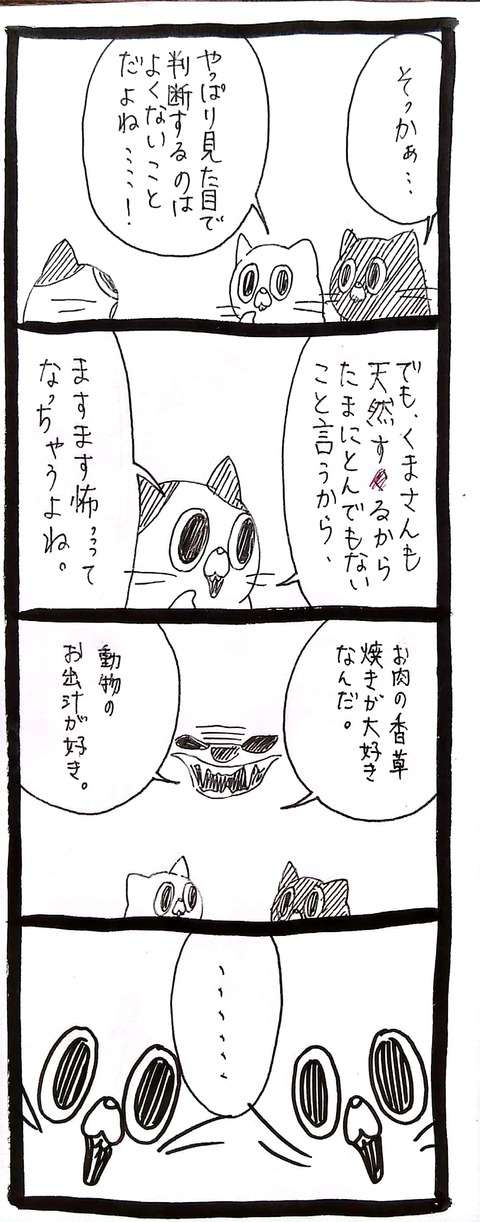 そっかぁ…
やっぱり見た目で
判断するのは
よくないこと
だよね……！
でも、くまさんも
天然すぎるから
たまにとんでもない
こと言うから、
ますます怖っって
なっちゃうよね。
お肉の香草
焼きが大好き
なんだ。
動物の
お出汁が好き。
、、、、、、、